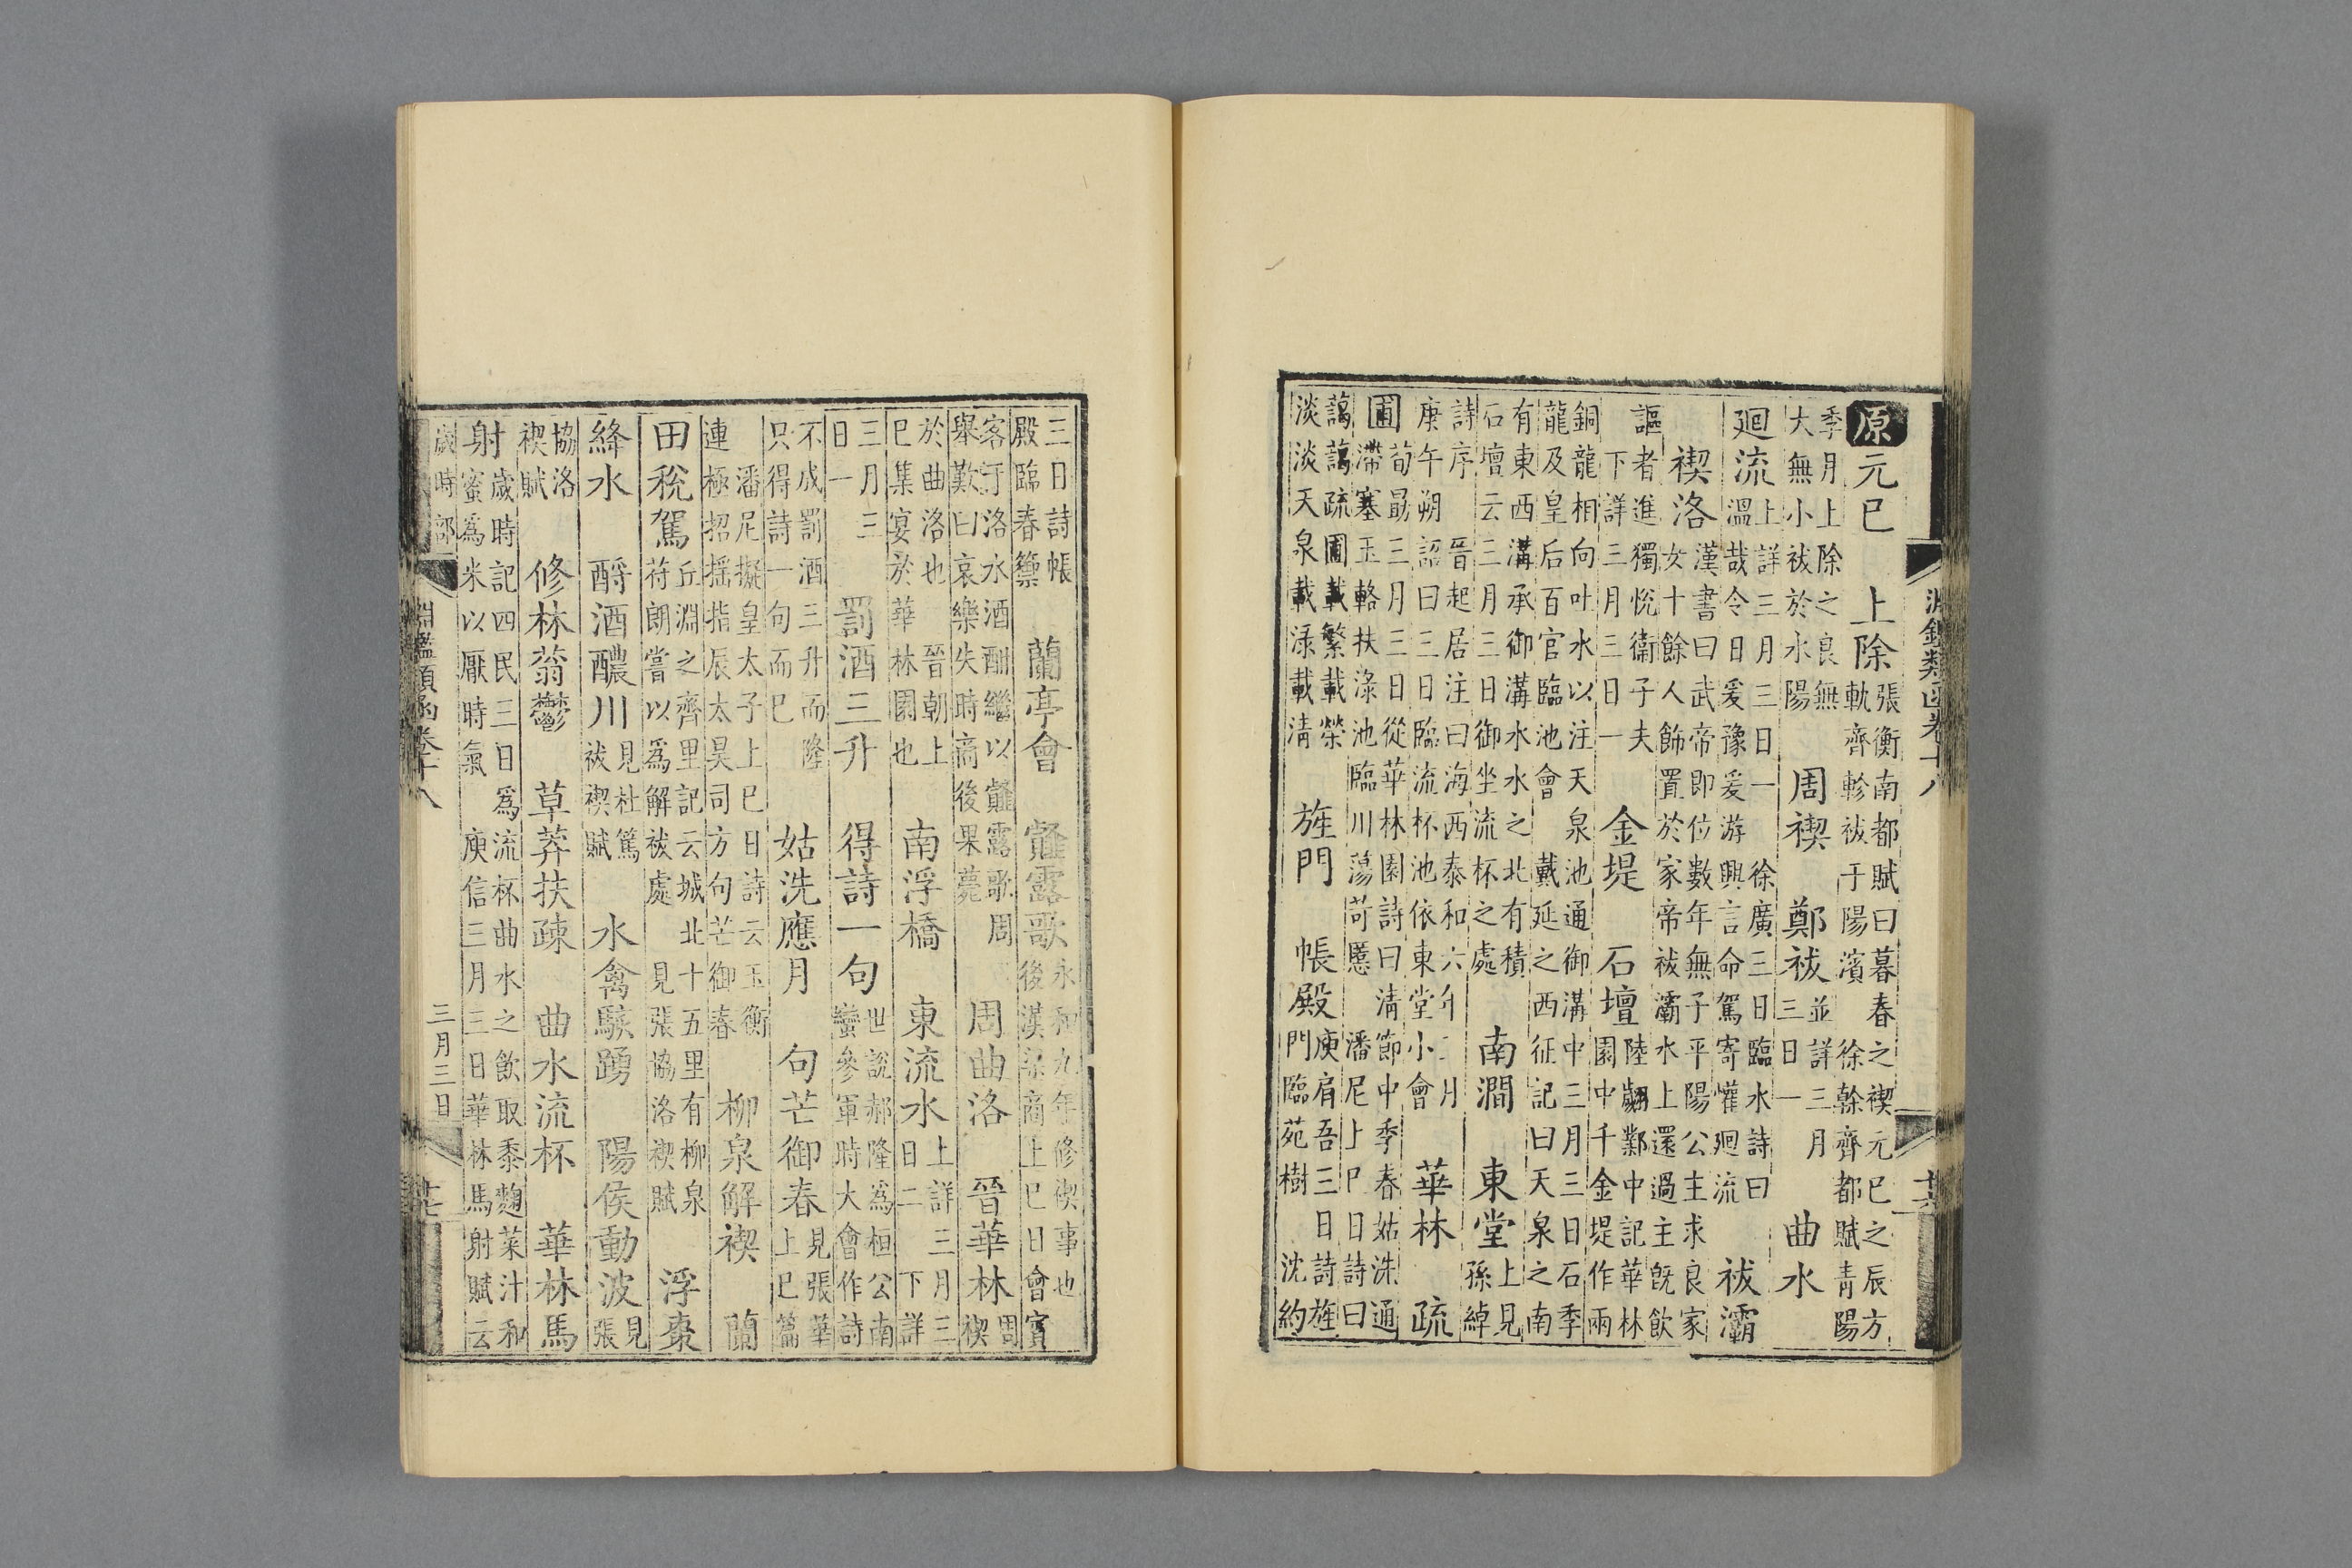 淵鑑類函卷十八 廿六
原元巳 上除張衡南都賦曰暮春之禊元巳之辰方
軌齊軫祓于陽濱 徐幹齊都賦青陽
季月上除之良無
大無小祓於水陽 周禊 鄭祓並詳三月
三日一 曲水
廻流上詳三月三日一 徐廣三日臨水詩曰
溫哉令日爰豫爰游興言命駕寄懽廻流 祓灞
禊洛漢書曰武帝即位數年無子平陽公主求良家
女十餘人飾置於家帝祓灞水上還過主既飲
謳者進獨恱衛子夫
下詳三月三日一 金堤 石壇陸翽鄴中記華林
園中千金堤作兩
銅龍相向吐水以注天泉池通御溝中三月三日石季
龍及皇后百官臨池會 戴延之西征記曰天泉之南
有東西溝承御溝水水之北有積
石壇云三月三日御坐流杯之處 南澗 東堂上見
孫綽
詩序 晉起居注曰海西泰和六年三月
庚午朔 詔曰三日臨流杯池依東堂小會 華林 疏
圃荀勗三月三日從華林園詩曰清節中季春姑洗通
滯塞玉輅扶淥池臨川蕩苛慝 潘尼上巳日詩曰
藹藹疏圃載繁載榮
淡淡天泉載淥載淸 旌門 帳殿庾肩吾三日詩旌
門臨苑樹 沈約
三日詩帳
殿臨春籞 蘭亭會 薤露歌永和九年修禊事也
後漢梁商上巳日會賓
客于洛水酒酣繼以薤露歌 周
舉歎曰哀樂失時商後果薨 周曲洛 晉華林周
禊
於曲洛也 晉朝上
巳集宴於華林園也 南浮橋 東流水上詳三月三
日二 下詳
三月三
日一 罰酒三升 得詩一句世說郝隆爲桓公南
蠻參軍時大會作詩
不成罰酒三升而隆
只得詩一句而巳 姑洗應月 句芒御春見張華
上巳篇
潘尼擬皇太子上巳日詩云玉衡
連極招摇指辰太昊司方句芒御春 柳泉解禊 蘭
田稅駕丘淵之齊里記云城北十五里有柳泉
苻朗嘗以爲解祓處 見張協洛禊賦 浮棗
絳水 酹酒醲川見杜篤
祓禊賦 水禽駭踴 陽侯動波見
張
協洛
禊賦 修林蓊鬱 草莽扶疎 曲水流杯 華林馬
射歲時記四民三日爲流杯曲水之飲取黍麴菜汁和
蜜爲米以厭時氣 庾信三月三日華林馬射賦云
歲時部
淵鑑類函卷十八 三月三日 廿七